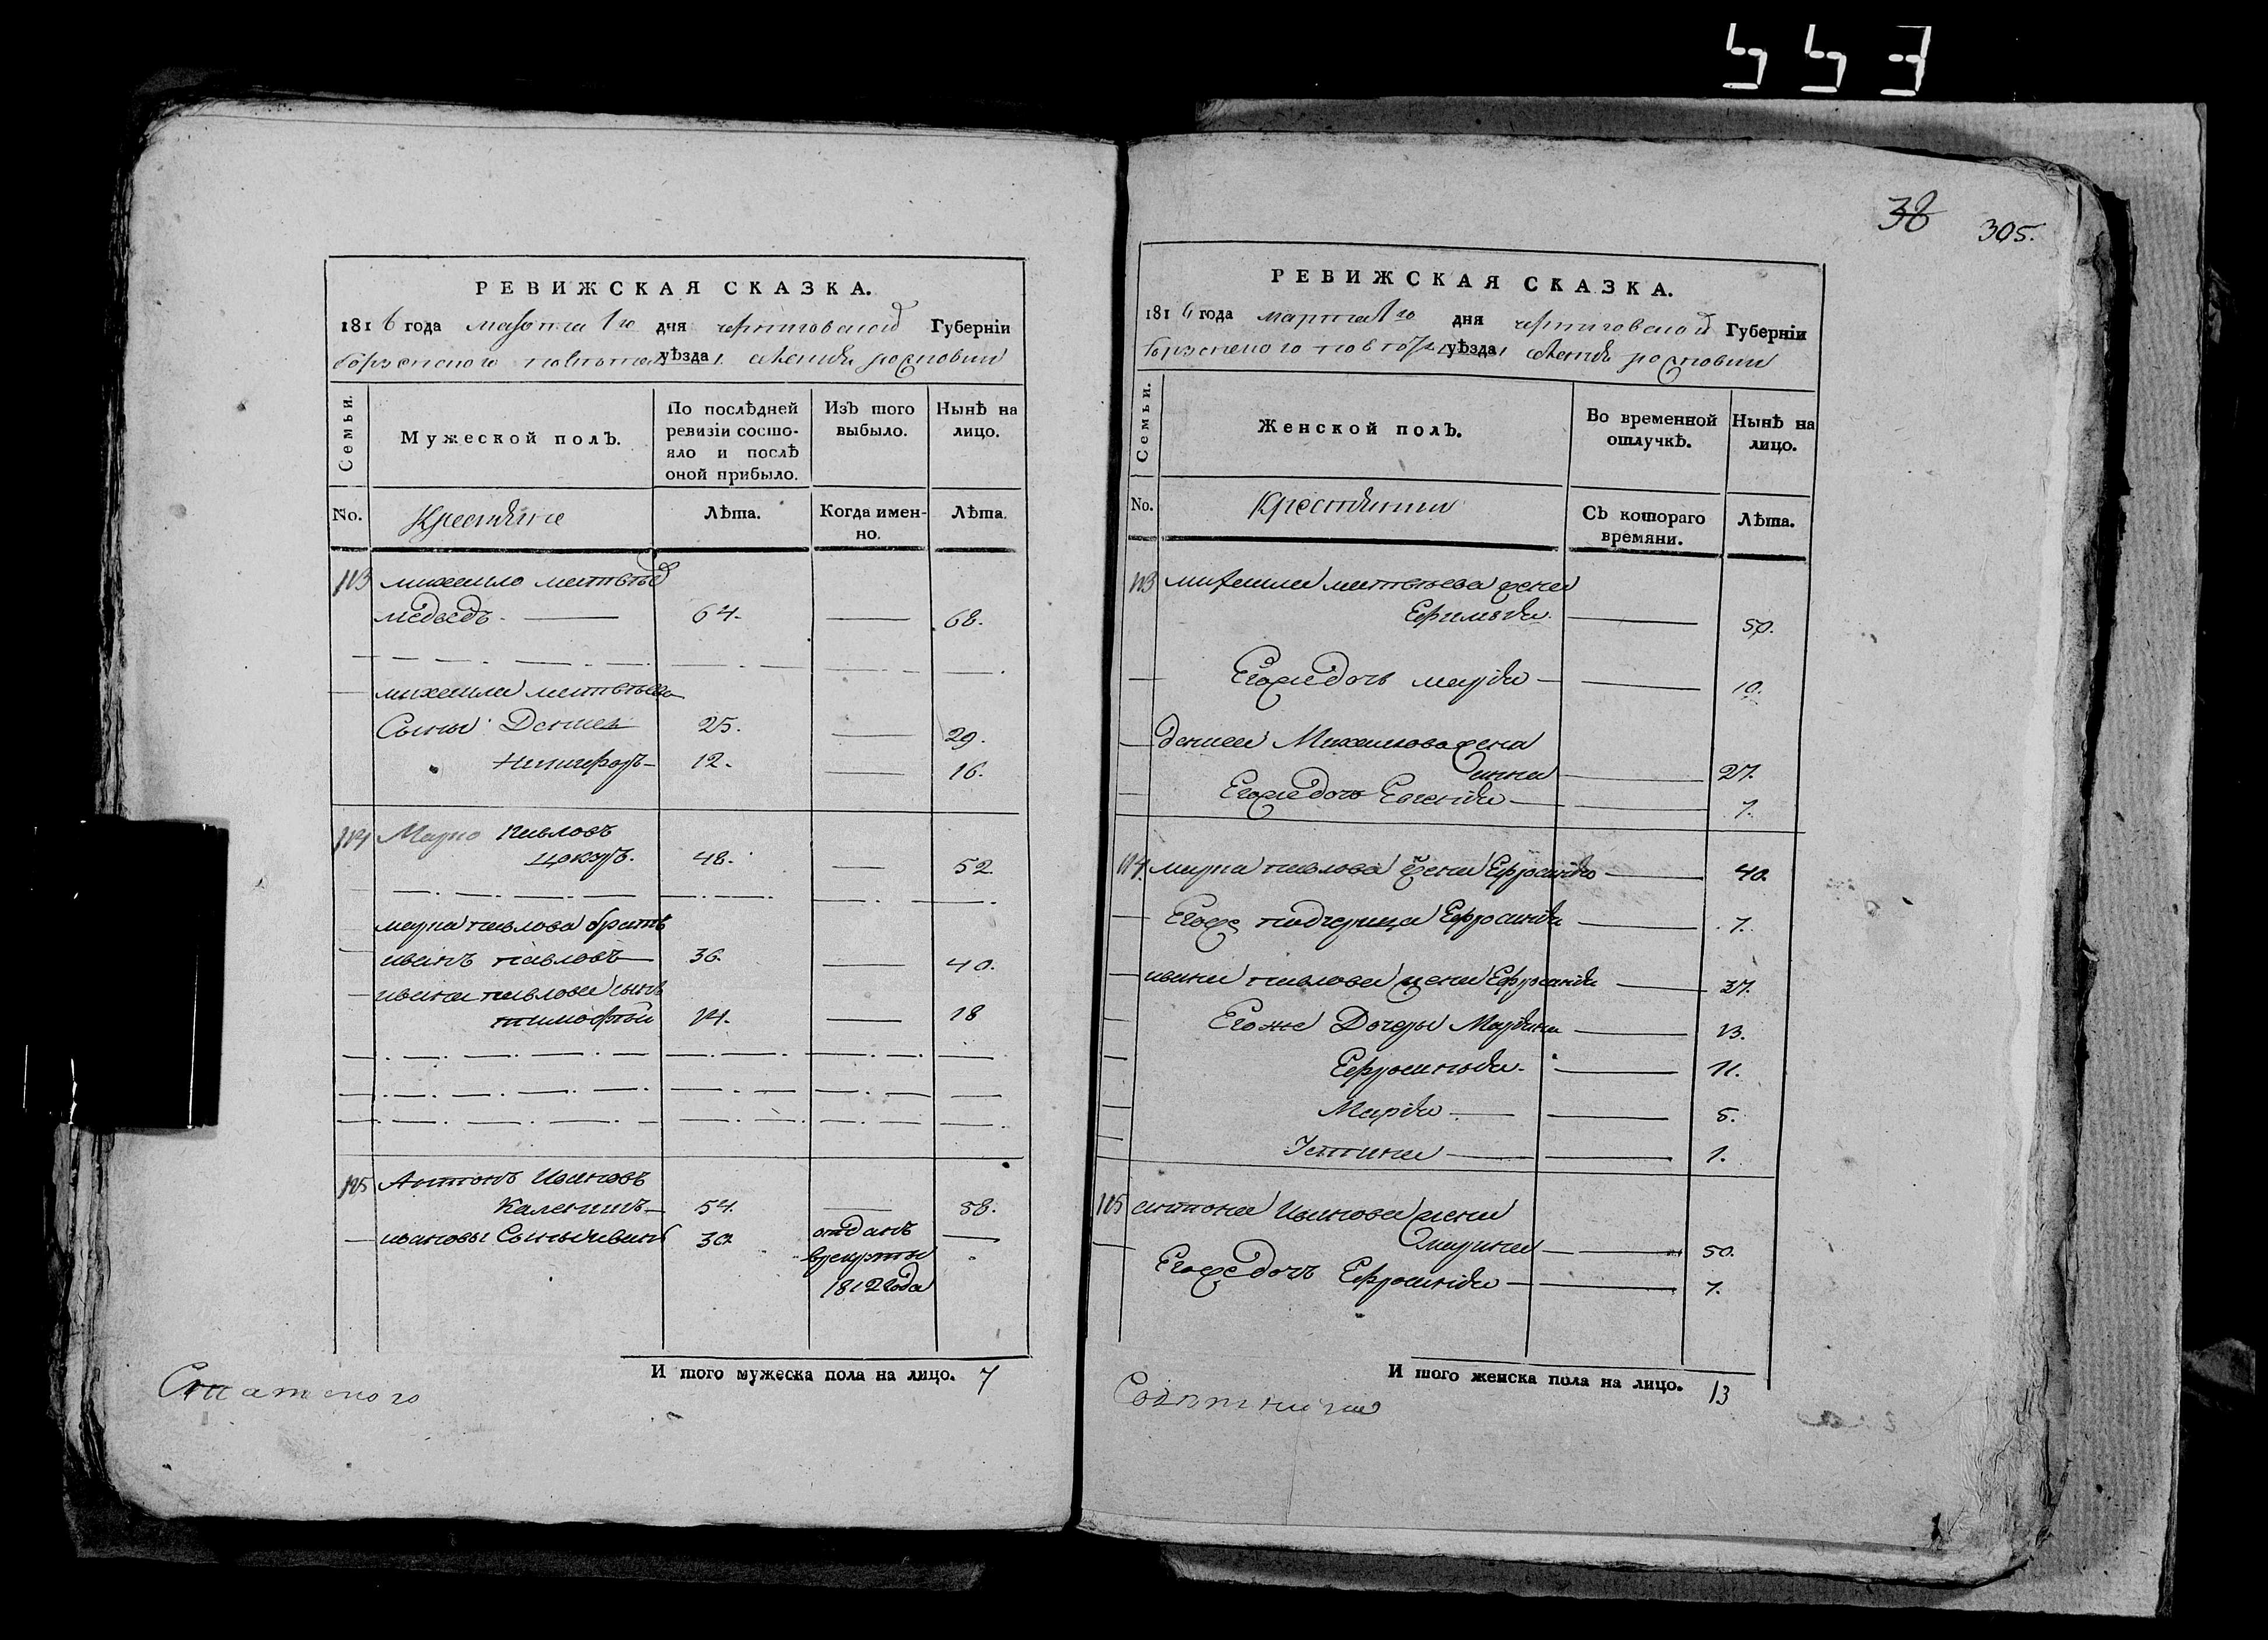 38 305.
РЕВИЖСКАЯ СКАЗКА.
1816 года марта 1го дня черниговской Губерніи
борзенского повѣта уѣзда,
Семьи.
Мужеской полъ.
По послѣдней ревизіи состояло и послѣ оной прибыло.
Изъ того выбыло.
Нынѣ на лицо.
No.
Крестяне
Лѣта.
Когда именно.
Лѣта.
113 михаило матвѣевъ
медведъ 64. 68.
михаила матвѣева
Сыны Данила 25. 29.
Никифоръ 12. 16.
114 Марко павловъ
48. 52.
марка павлова братъ
иванъ павловъ 36. 40.
ивана павлова сынъ
тимофѣй 14. 18
115 Антонъ Ивановъ
54. 58.
Сынъ 30 отданъ
врекруты
1812 года
И того мужеска пола на лицо. 7
РЕВИЖСКАЯ СКАЗКА.
1816 года марта 1го дня черниговской Губерніи
борзенского повѣта уѣзда,
Семьи.
Женской полъ.
Во временной отлучкѣ.
Нынѣ на лицо.
No.
Крестянки
Съ котораго времяни.
Лѣта.
113 михаила матвѣева жена
50.
Егоже дочь марія 10.
данила Михаилова жена
анна 27.
Егоже дочь 1.
114. марка павлова жена Ефросинія 40.
Егоже падчерица Ефросинія 7.
ивана павлова жена Ефросинія 37.
Егоже Дочеры Маріяна 13.
Ефросинія 11.
Марія 5.
Устина 1.
115 антона Иванова жена
марина 50.
Егоже дочь Ефросинія 7.
И того женска пола на лицо. 13